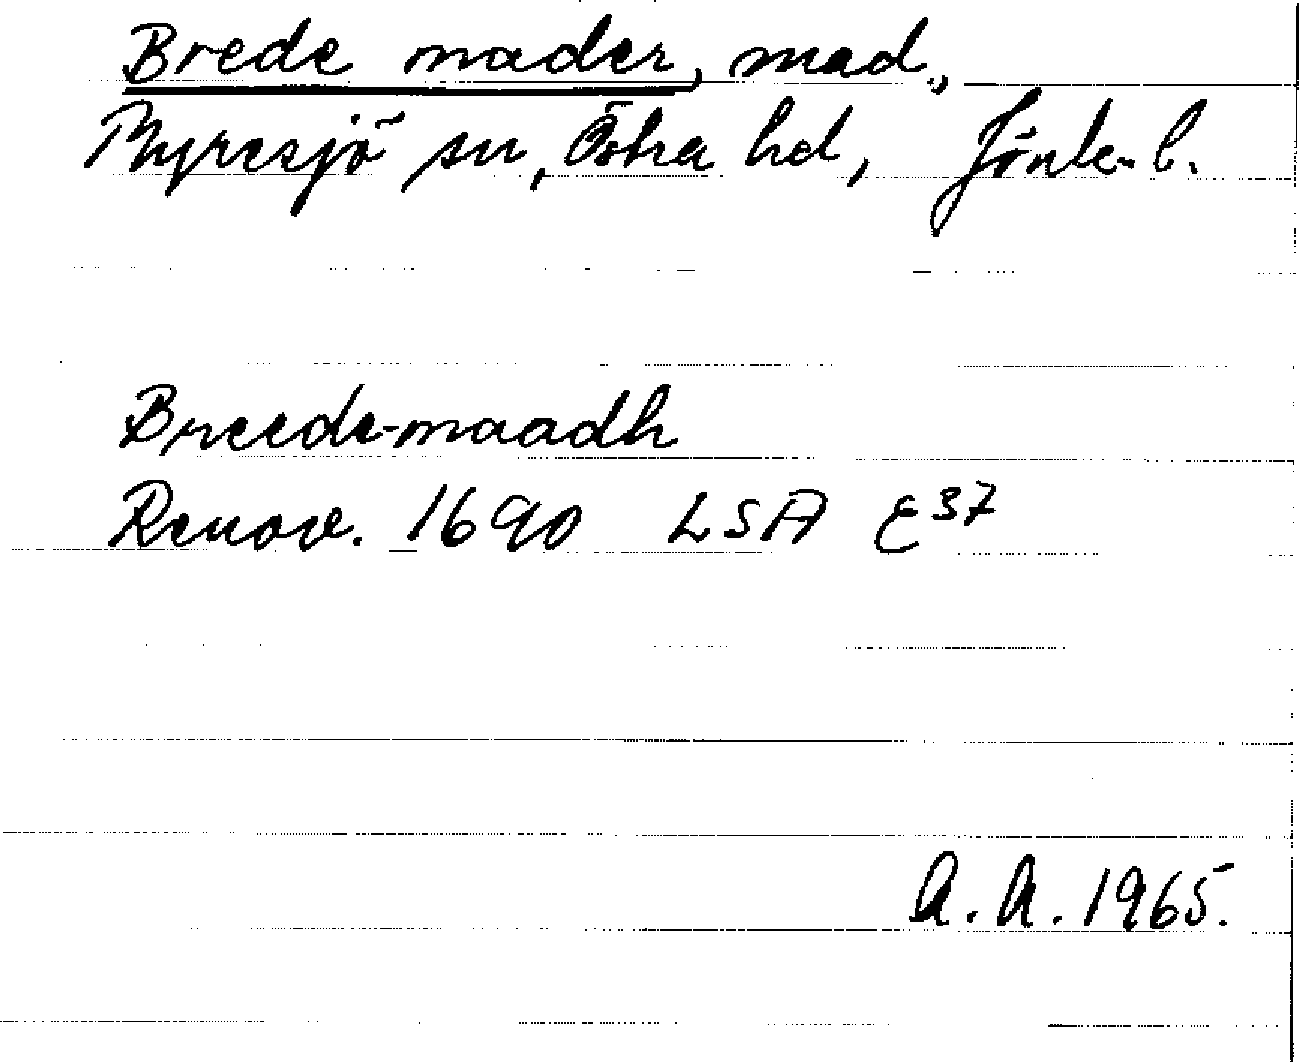 Brede mader, mad.,
Myresjö sn, Östra hd, Jönk. l.
Breede-maadh
Renov. 1690 LSA E37
A. A. 1965.